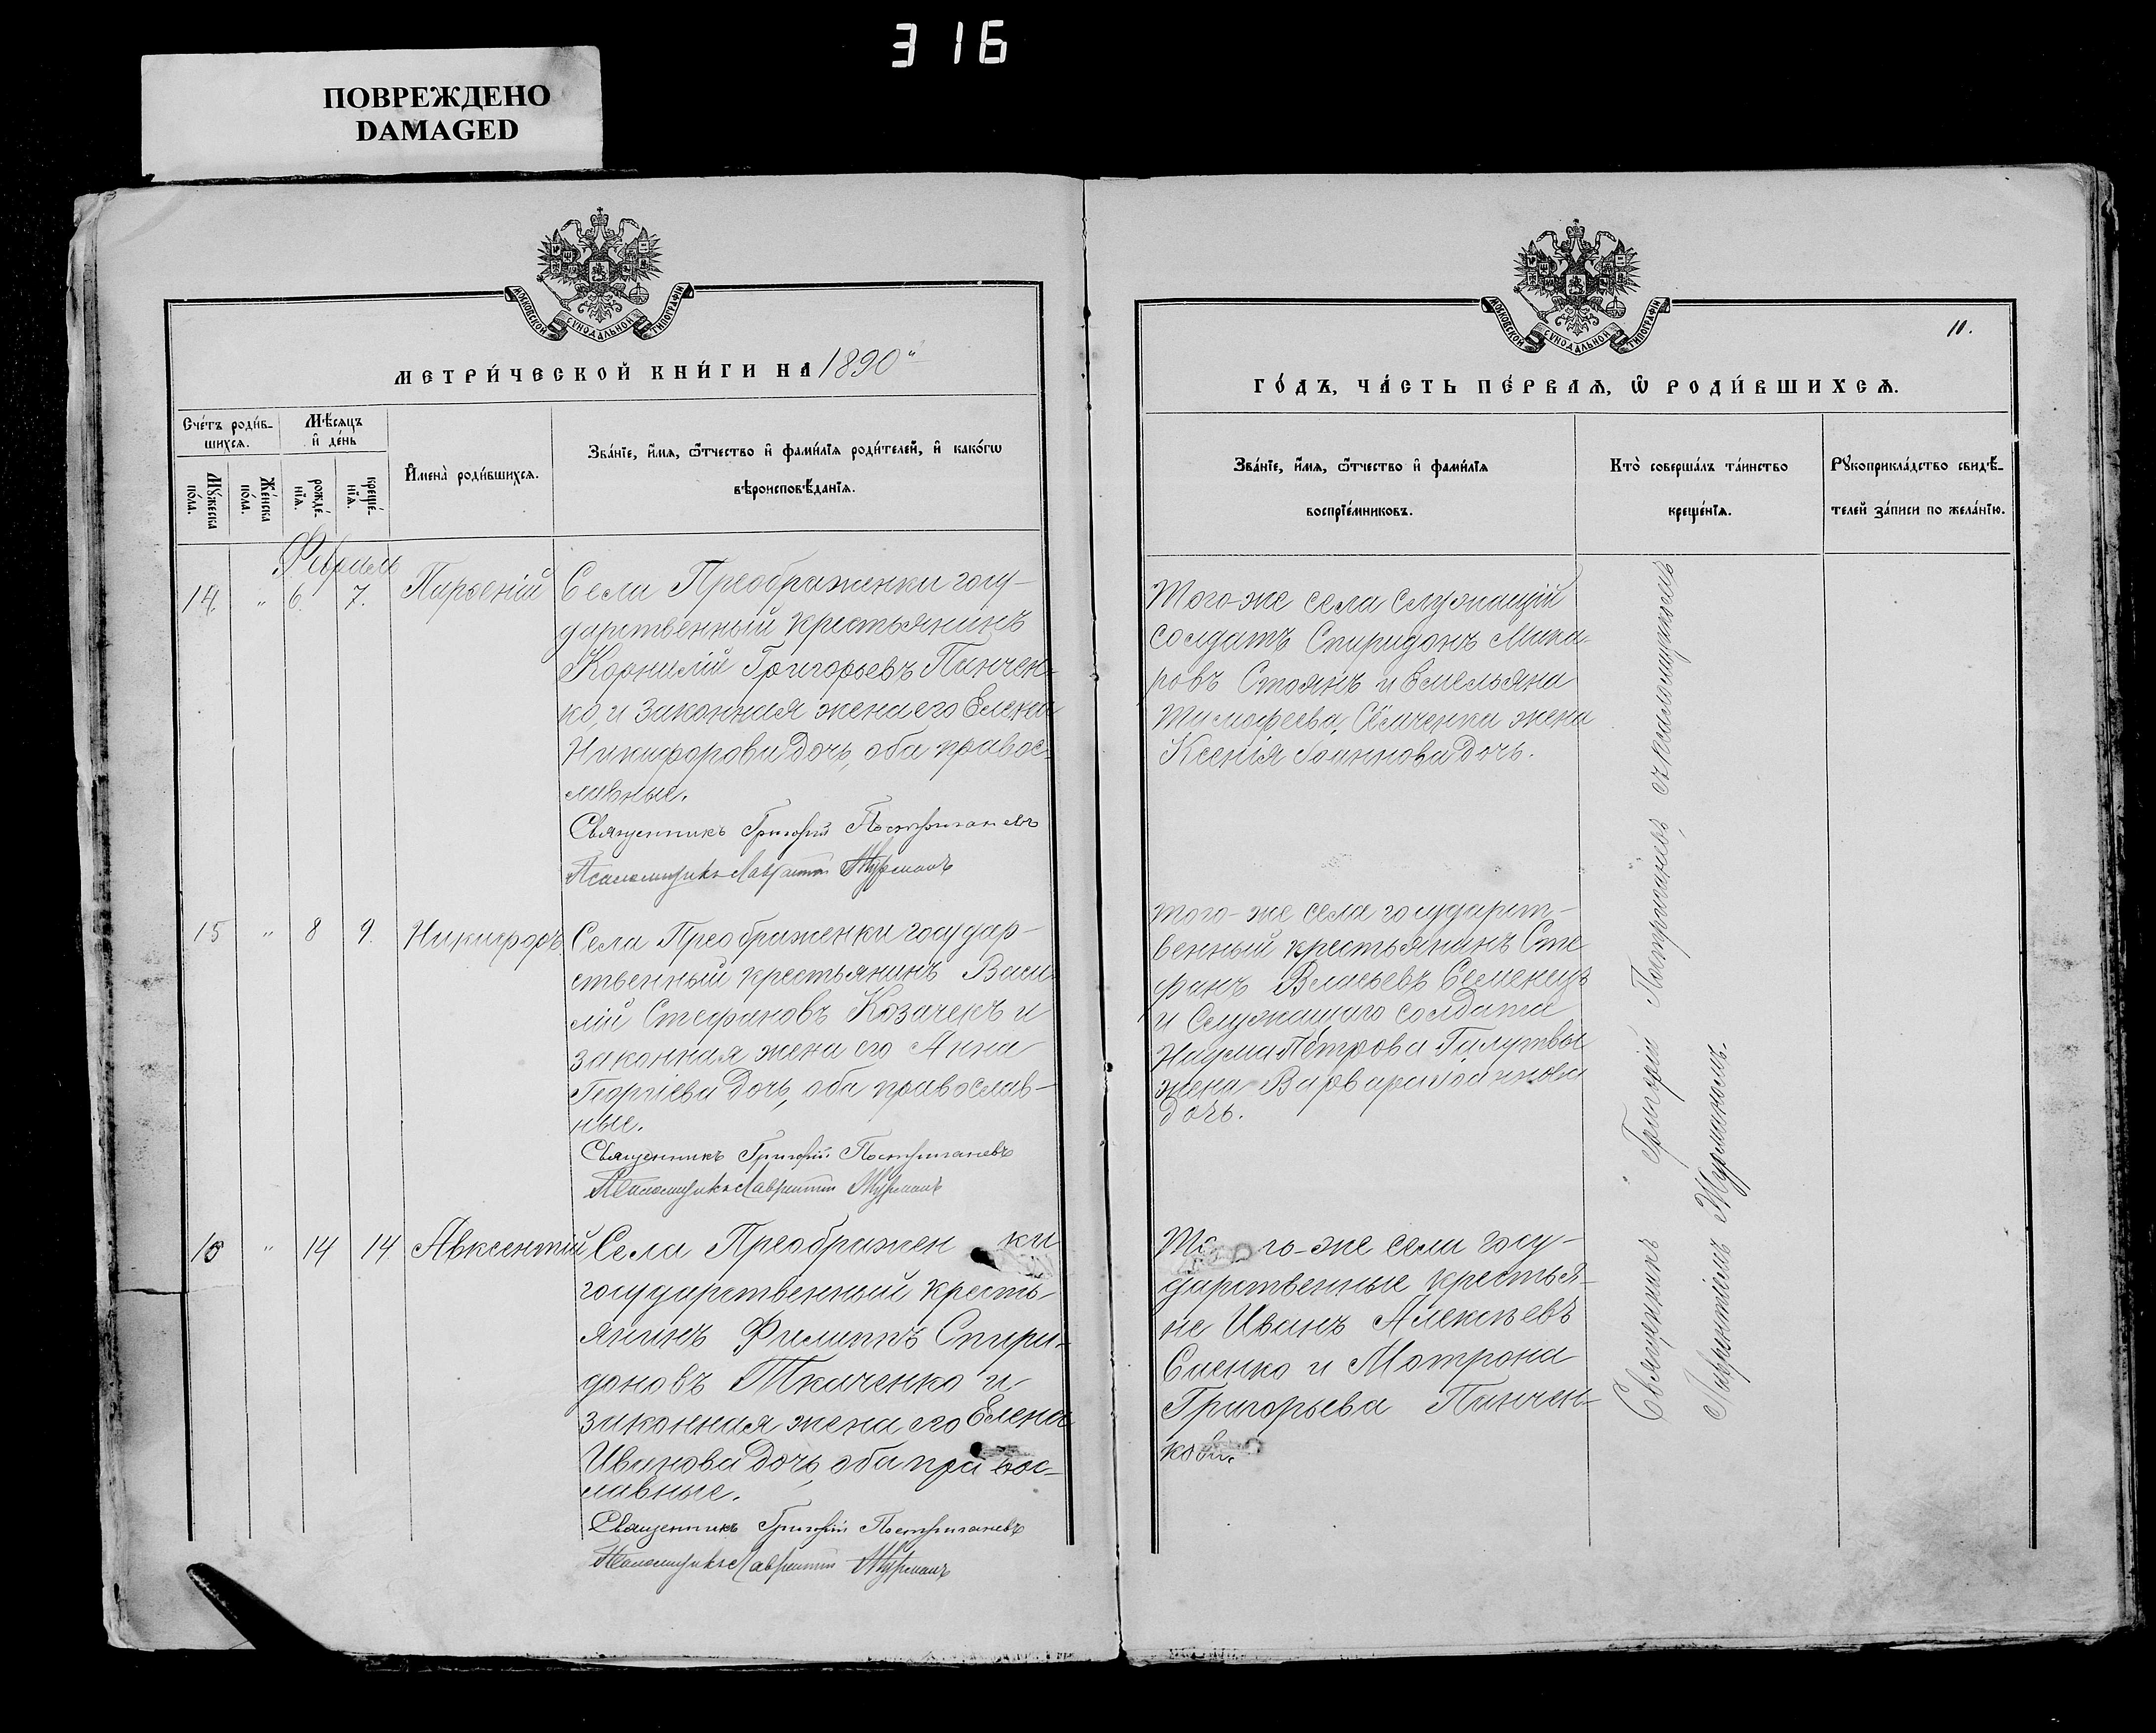 316
ПОВРЕЖДЕНО
DAMAGED
МОСКОВСКОЙ СѴНОДАЛЬНОЙ ТИПОГРАФІИ
МЕТРИ́ЧЕСКОЙ КНИ́ГИ НА 1890"
Сче́тъ роди́в-
шихсѧ.
Мѣ́сѧцъ
и҆ де́нь
Мꙋ́жеска
по́ла.
Же́нска
по́ла.
рожде́-
нїѧ.
креще́-
нїѧ.
И҆мена̀ роди́вшихсѧ.
Зва́нїе, и҆́мѧ, ѻ҆́тчество и҆ фами́лїѧ роди́телей, и҆ како́гѡ
вѣроисповѣ́данїѧ.
Февраль
14. " 6. 7. Парѳеній
Села Преображенки госу-
дарственный крестьянинъ
Корнилій Григорьевъ Панчен-
ко, и законная жена его Елена
Никифорова дочь, оба правос-
лавные.
Священникъ Григорій Постригачевъ
Псаломщикъ Лаврентій Журманъ
15 " 8 9. Никифоръ
Села Преображенки государ-
ственный крестьянинъ Васи-
лій Стефановъ Козачекъ и
законная жена его Анна
Георгіева дочь, оба православ-
ные.
Священникъ Григорій Постригачевъ
Псаломщикъ Лаврентій Журманъ
16 " 14 14 Авксентій
Села Преображен ки
государственный кресть-
янинъ Филиппъ Спири-
доновъ Ткаченко и
законная жена его Елена
Иванова дочь, оба пра вос-
лавные.
Священникъ Григорій Постригачевъ
Псаломщикъ Лаврентій Журманъ
МОСКОВСКОЙ СѴНОДАЛЬНОЙ ТИПОГРАФІИ
11.
ГО́ДЪ, ЧА́СТЬ ПЕ́РВАѦ, Ѡ҆ РОДИ́ВШИХСѦ.
Зва́нїе, и҆́мѧ, ѻ҆́тчество и҆ фами́лїѧ
воспрїе́мниковъ.
Кто̀ соверша́лъ та́инство
креще́нїѧ.
Рꙋкоприкла́дство свидѣ́-
телей за́писи по жела́нїю.
Того-же села служащій
солдатъ Спиридонъ Мака-
ровъ Стоянъ и Емельяна
Тимофеева, жена
Ксенія Іоаннова дочь.
того-же села государст-
венный крестьянинъ Сте
фанъ Власьевъ Семенецъ
и Служащаго солдата
Наума Петрова Галушвы
жена Варвара Іоаннова
дочь.
То го-же села госу-
дарственные крестья-
не Иванъ Алексѣевъ
Саенко и Мотрона
Григорьева Панчен-
кова.
Священникъ Григорій Постригачевъ, съ псаломщикомъ
Лаврентіемъ Журманомъ.